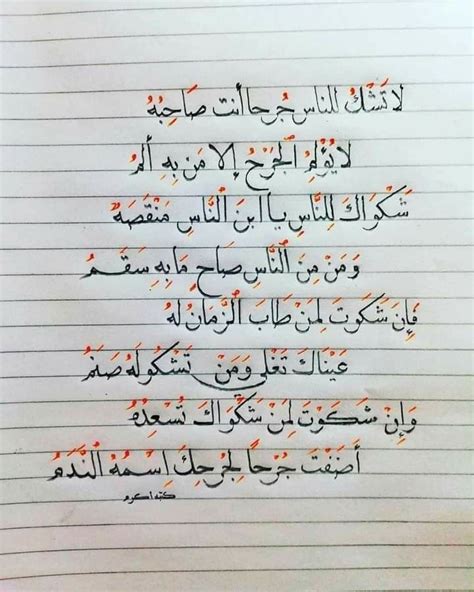 لا تَشْكُ للناس جُرحا أنت صَاحِبُهُ
لا يُؤْلِمُ الجَرْحُ إلا مَن بِهِ أَلَمُ
شَكْوَاكَ لِلنَّاسِ يا ابنَ النَّاسِ مَنْقَصَةٌ
وَمَنْ مِنَ النَّاسِ صَاحٍ مَا بِهِ سَقَمُ
فَإِن شَكَوتَ لِمنْ طَابَ الزَّمَانُ لهُ
عَيْنَاكَ تَغْلي وَمَنْ تَشْكُو لَهُ صَنَمُ
وَإِنْ شَكَوْتَ لِمَنْ شَكْوَاكَ تُسْعِدُهُ
أَضَفْتَ جُرْحاً لِجُرحِكَ اِسْمُهُ النَّدَمُ
كتبه اكرم